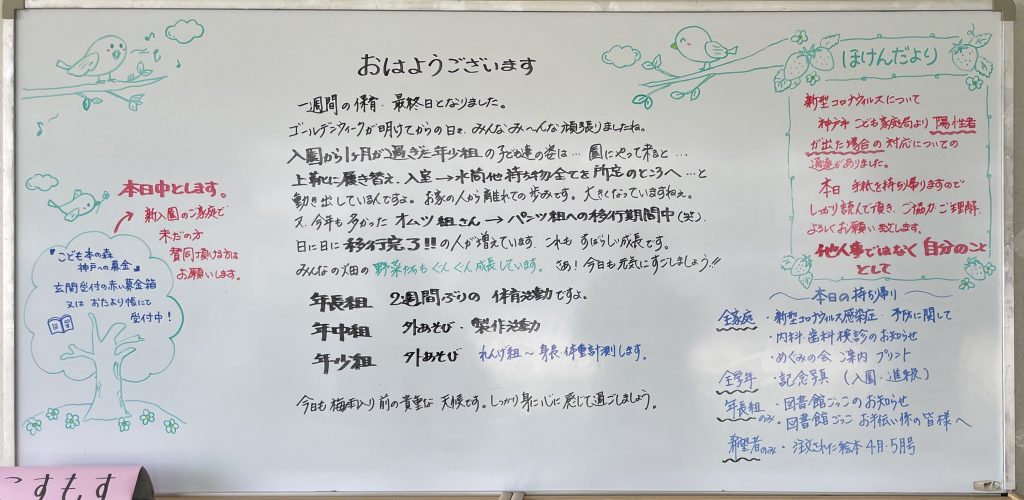 おはようございます
一週間の保育、最終日となりました。
ゴールデンウィークが明けてからの日々、みんなみ〜んな頑張りましたね。
入園から1ヶ月が過ぎた年少組の子ども達の姿は… 園にやって来ると…
上靴に履き替え、入室→水筒他持ち物全てを所定のところへ…と
動き出しているんですよ。お家の人から離れての歩みです。大きくなっていますねぇ。
又、今年も多かった オムツ組さん→パンツ組への移行期間中(笑)
日に日に移行完了!!の人が増えています。これも すばらしい成長です。
みんなの畑の野菜たちもぐんぐん成長しています。さあ!今日も元気にすごしましょう!!
年長組 2週間ぶりの 体育活動ですよ。
年中組 外あそび・製作活動
年少組 外あそび れんげ組〜身長・体重計測します。
今日も梅雨入り前の貴重な天候です。しっかり身に心に感じて過ごしましょう。
本日中とします。
新入園のご家庭で
未だの方
賛同頂ける方は
お願いします。
『こども本の森
神戸への募金』
玄関受付の赤い募金箱
又は おたより帳にて
受付中!
こすもす
ほけんだより
新型コロナウィルスについて
神戸市こども家庭局より陽性者
が出た場合の対応についての
通達がありました。
本日 手紙を持ち帰りますので
しっかり読んで頂き、ご協力・ご理解、
よろしくお願い致します。
他人事ではなく 自分のこと
として
本日の持ち帰り
全家庭 ・新型コロナウィルス感染症・予防に関して
・内科・歯科検診のお知らせ
・めぐみの会 ご案内 プリント
全学年 ・記念写真(入園・進級)
年長組のみ ・図書館ごっこのお知らせ
・図書館ごっこ お手伝い係の皆様へ
希望者のみ ・注文された絵本4月・5月号